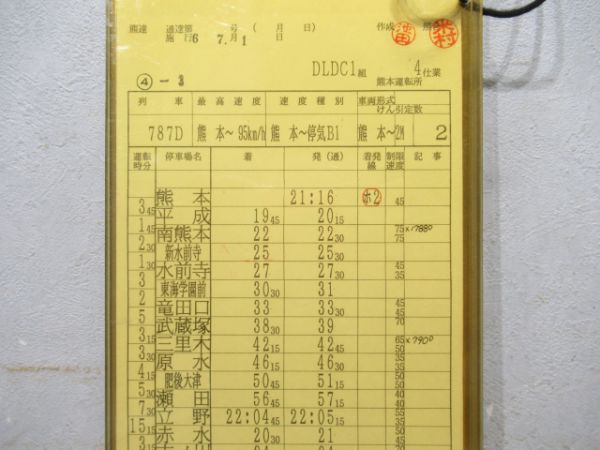 熊達 通達第 号( 月 日) 作成
施行6 7.月1 日
DLDC1組 4仕業
④-3 熊本運転所
列車 最高速度 速度種別 車両形式 けん引定数
787D 熊本~95km/h 熊本~停気B1 熊本~2M 2
運転時分 停車場名 着 発(通) 着発線 制限速度 記事
熊本 21:16 ホ2 45
3 45 平成 19 45 20 15
1 45 南熊本 22 22 30 75 75 ×1788D
2 30 新水前寺 25 25 30
1 30 水前寺 27 27 30 45 35
3 東海学園前 30 30 31
2 竜田口 33 33 30 45 45
5 武蔵塚 38 30 39 70
3 15 三里木 42 15 42 45 65 50 ×790D
3 30 原水 46 15 46 30 45 35
4 15 肥後大津 50 45 51 15
5 30 瀬田 56 45 57 15 40
7 30 立野 22:04 45 22:05 15
15 15 赤水 20 30 21